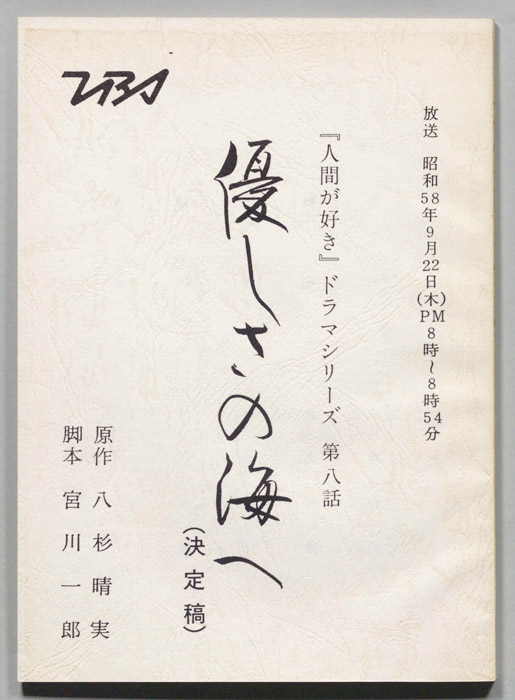 TBS
放送 昭和58年9月22日(木)PM8時~8時54分
『人間が好き』ドラマシリーズ 第八話
優しさの海へ
(決定稿)
原作 八杉晴実
脚本 宮川一郎